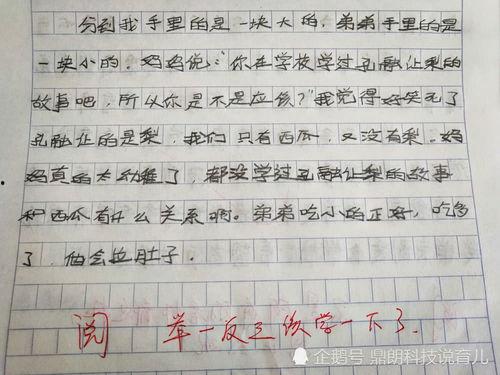 分到我手里的是一块大的，弟弟手里的是
一块小的。妈妈说："你在学校学过孔融让梨的
故事吧，所以你是不是应该？"我觉得好笑死了
孔融让的是梨，我们只有西瓜，又没有梨。妈
妈真的太幼稚了，都没学过孔融让梨的故事
和西瓜有什么关系啊。弟弟吃小的正好，吃多
了，他会拉肚子。
阅 举一反三该学一下了。
企鹅号 鼎朗科技说育儿